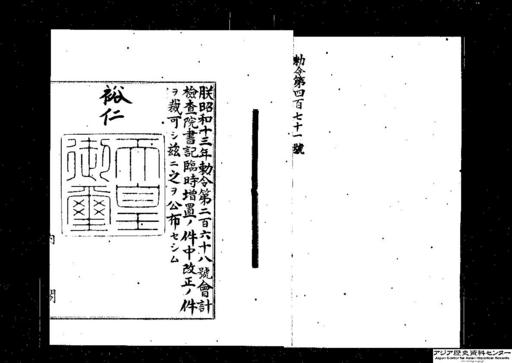 勅令第四百七十一號
朕昭和十三年勅令第二百六十八號會計
檢査院書記臨時增置ノ件中改正ノ件
ヲ裁可シ玆ニ之ヲ公布セシム
裕仁
天皇
御璽
内閣
アジア歴史資料センター
Japan Center for Asian Historical Records